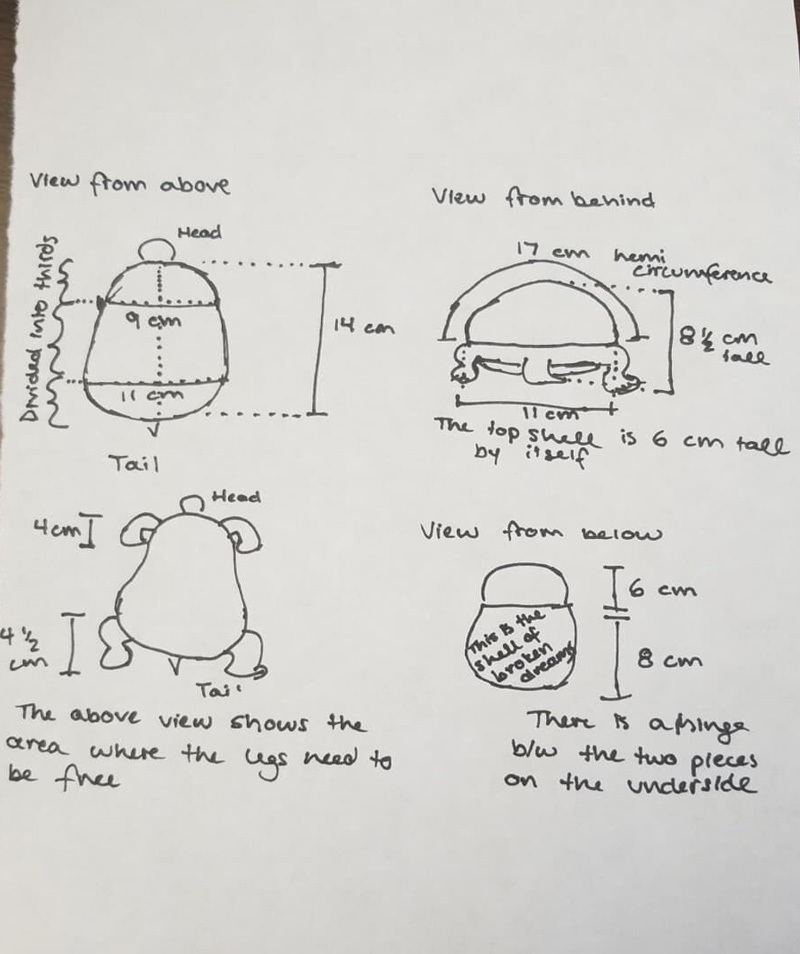 View from above
Head
Divided into thirds
9 cm
14 cm
11 cm
Tail
View from behind
17 cm hemi
circumference
8 1/2 cm
tall
11 cm
The top shell is 6 cm tall
by itself
Head
4cm
4 1/2
cm
Tail
The above view shows the
area where the legs need to
be free
View from below
6 cm
This is the
shell of
broken
dreams
8 cm
There is a hinge
b/w the two pieces
on the underside